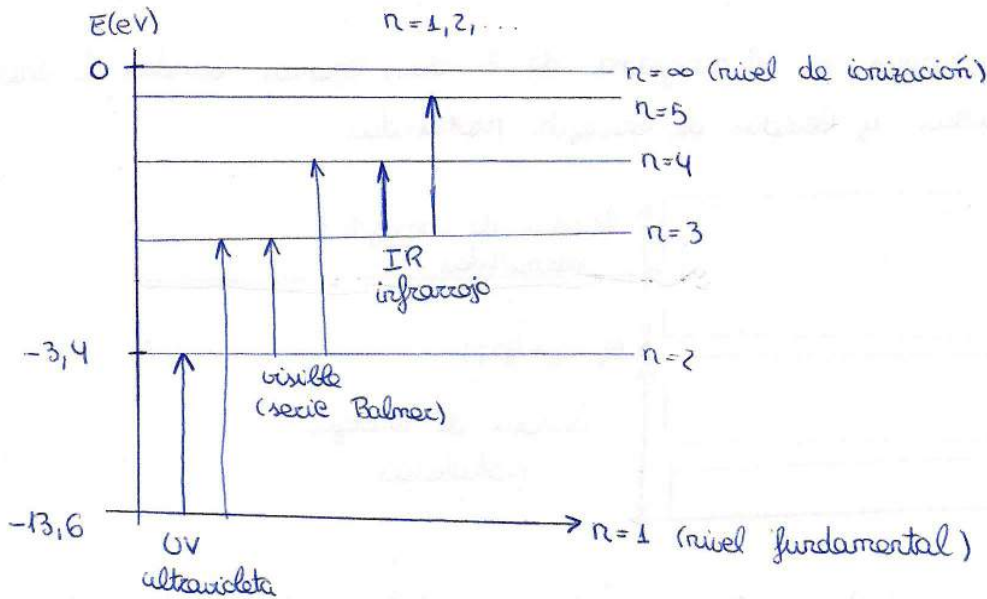 E(eV)
n=1,2,...
0
n=∞ (nivel de ionización)
n=5
n=4
n=3
IR
infrarrojo
-3,4
n=2
visible
(serie Balmer)
-13,6
n=1 (nivel fundamental)
UV
ultravioleta